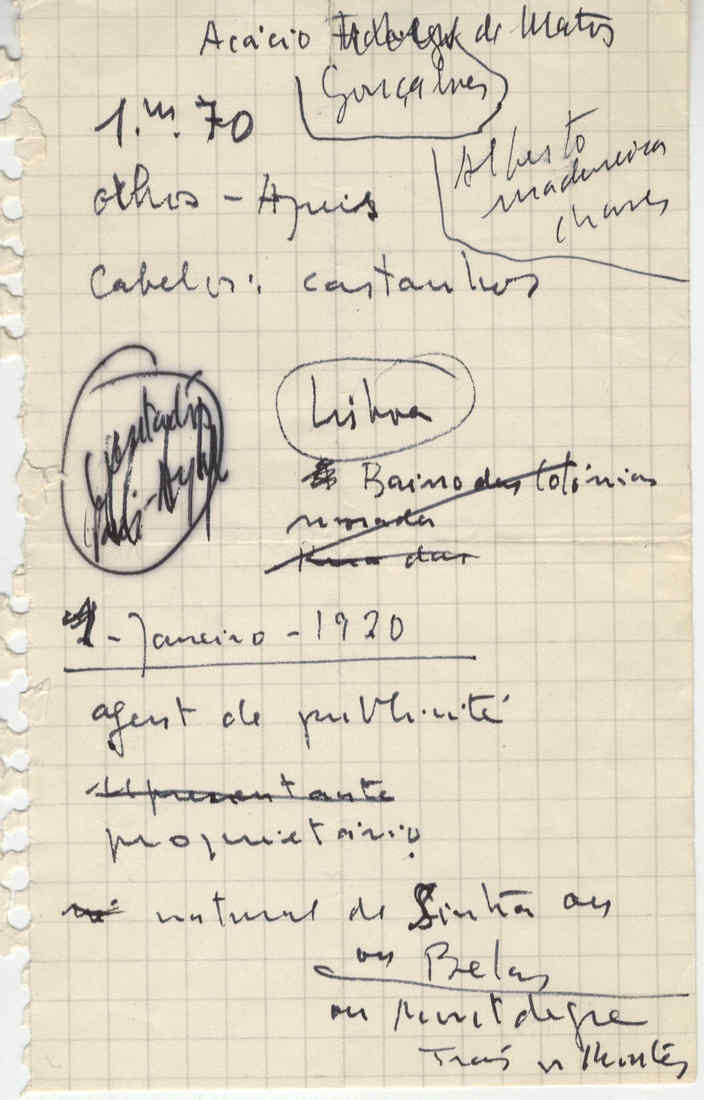 Acácio de Matos
Gonçalves
1.m. 70
Alberto
Madureira
Chaves
olhos - Azuis
Cabelos: castanhos
Lisboa
Bairro das Colónias
morada
Rua das
1 - Janeiro - 1920
agent de publicité
Representante
proprietário
natural de Sintra ou
ou Belas
ou
Trás os Montes